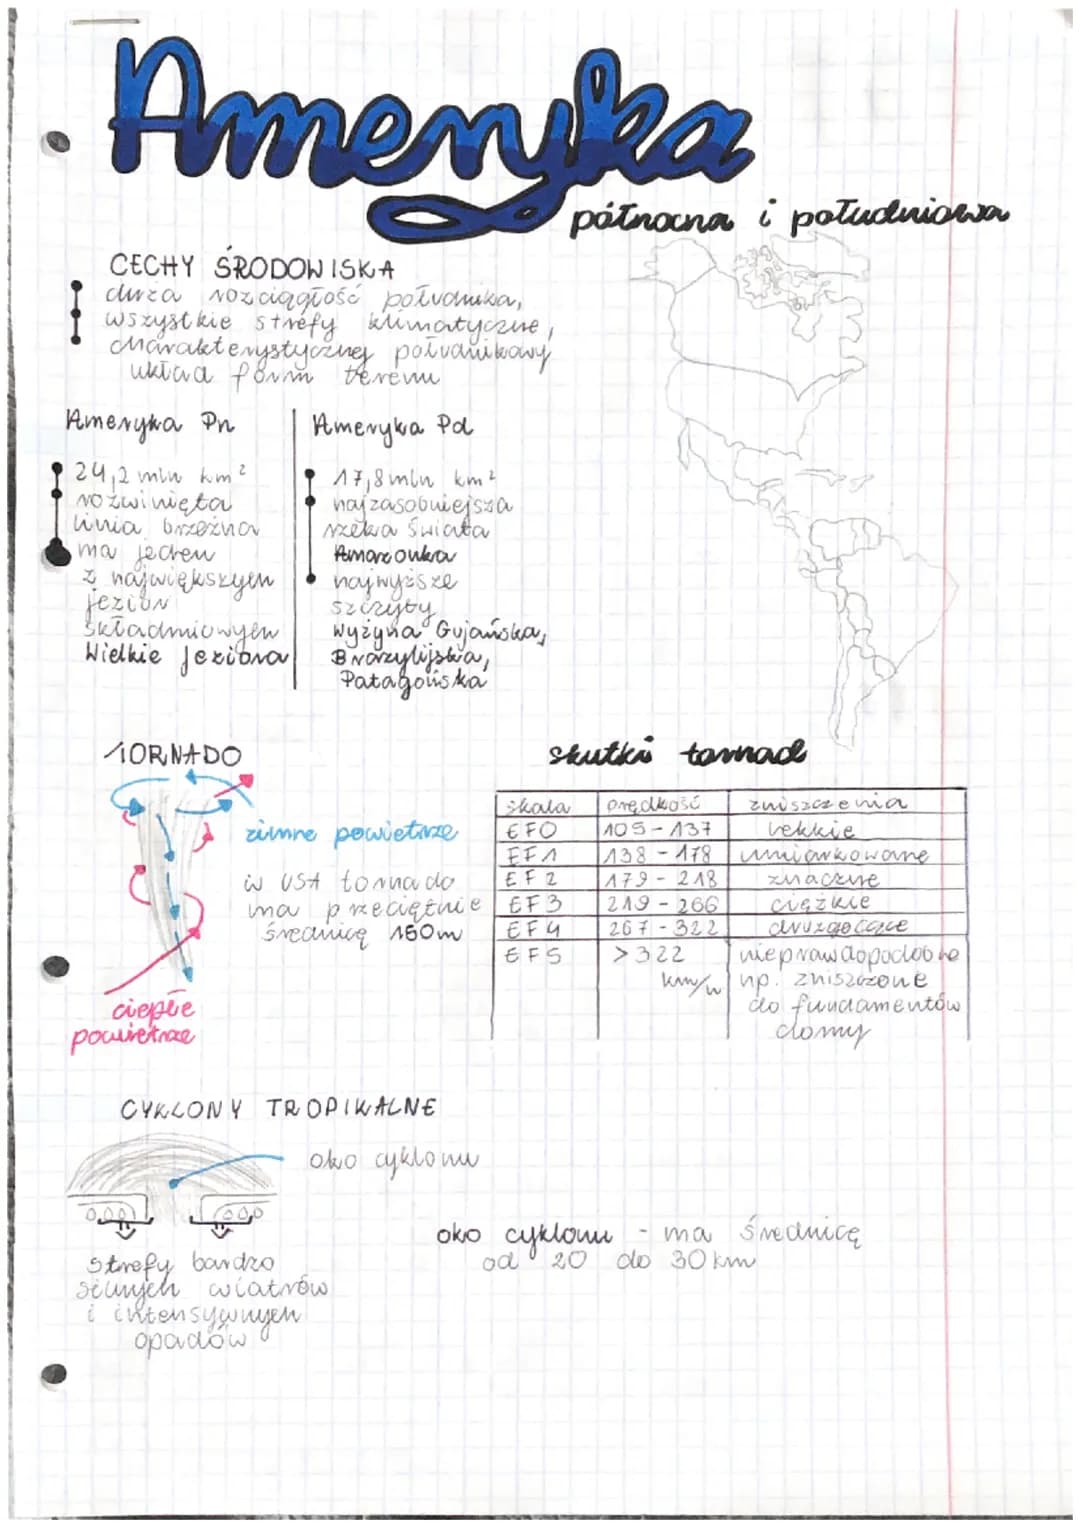 Ameryka
północna i południowa
CECHY ŚRODOWISKA
duża rozciągłość południka,
wszystkie strefy klimatyczne,
charakterystycznej południkowy
układ form terenu
Ameryka Pn
24,2 mln km²
rozwinięta
linia brzeżna
ma jeden
z największych
jezior
składmiowych
Wielkie Jeziora
Ameryka Pd
17,8 mln km²
najzasobniejsza
rzeka świata
Amazonka
najwyższe
szczyty
wyżyna Gujańska,
Brazylijska,
Patagońska
TORNADO
zimne powietrze
w USA tornado
ma przeciętnie
średnicę 160m
ciepłe
powietrze
skutki tornad
skala prędkość zniszczenia
EF0 105-137 lekkie
EF1 138-178 umiarkowane
EF2 179-218 znaczne
EF3 219-266 ciężkie
EF4 267-322 druzgocące
EF5 >322 nieprawdopodobne
km/h np. zniszczone
do fundamentów
domy
CYKLONY TROPIKALNE
oko cyklonu
strefy bardzo
silnych wiatrów
i intensywnych
opadów
oko cyklonu - ma średnicę
od 20 do 30 km